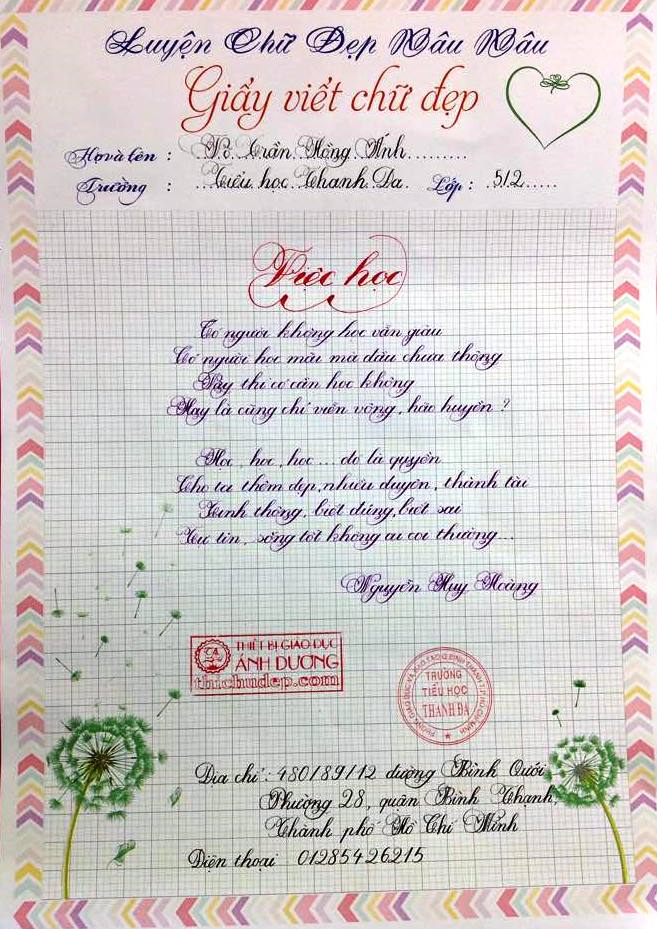 Luyện Chữ Đẹp Nâu Nâu
Giấy viết chữ đẹp
Họ và tên : Võ Trần Hồng Ánh
Trường : Tiểu học Thanh Đa Lớp : 5/2
Việc học
Có người không học vẫn giàu
Có người học mãi mà đâu chưa thông
Vậy thì có cần học không
Hay là cũng chỉ viển vông, hão huyền ?
Học, học, học... đó là quyền
Cho ta thêm đẹp, nhiều duyên, thành tài
Tinh thông, biết đúng, biết sai
Tự tin, sống tốt không ai coi thường...
Nguyễn Huy Hoàng
THIẾT BỊ GIÁO DỤC
ÁNH DƯƠNG
thichudep.com
PHÒNG GIÁO DỤC VÀ ĐÀO TẠO Q.BÌNH THẠNH T.P HỒ CHÍ MINH
TRƯỜNG
TIỂU HỌC
THANH ĐA
Địa chỉ : 480/89/12 đường Bình Qưới
Phường 28, quận Bình Thạnh,
Thành phố Hồ Chí Minh
Điện thoại 01285426215